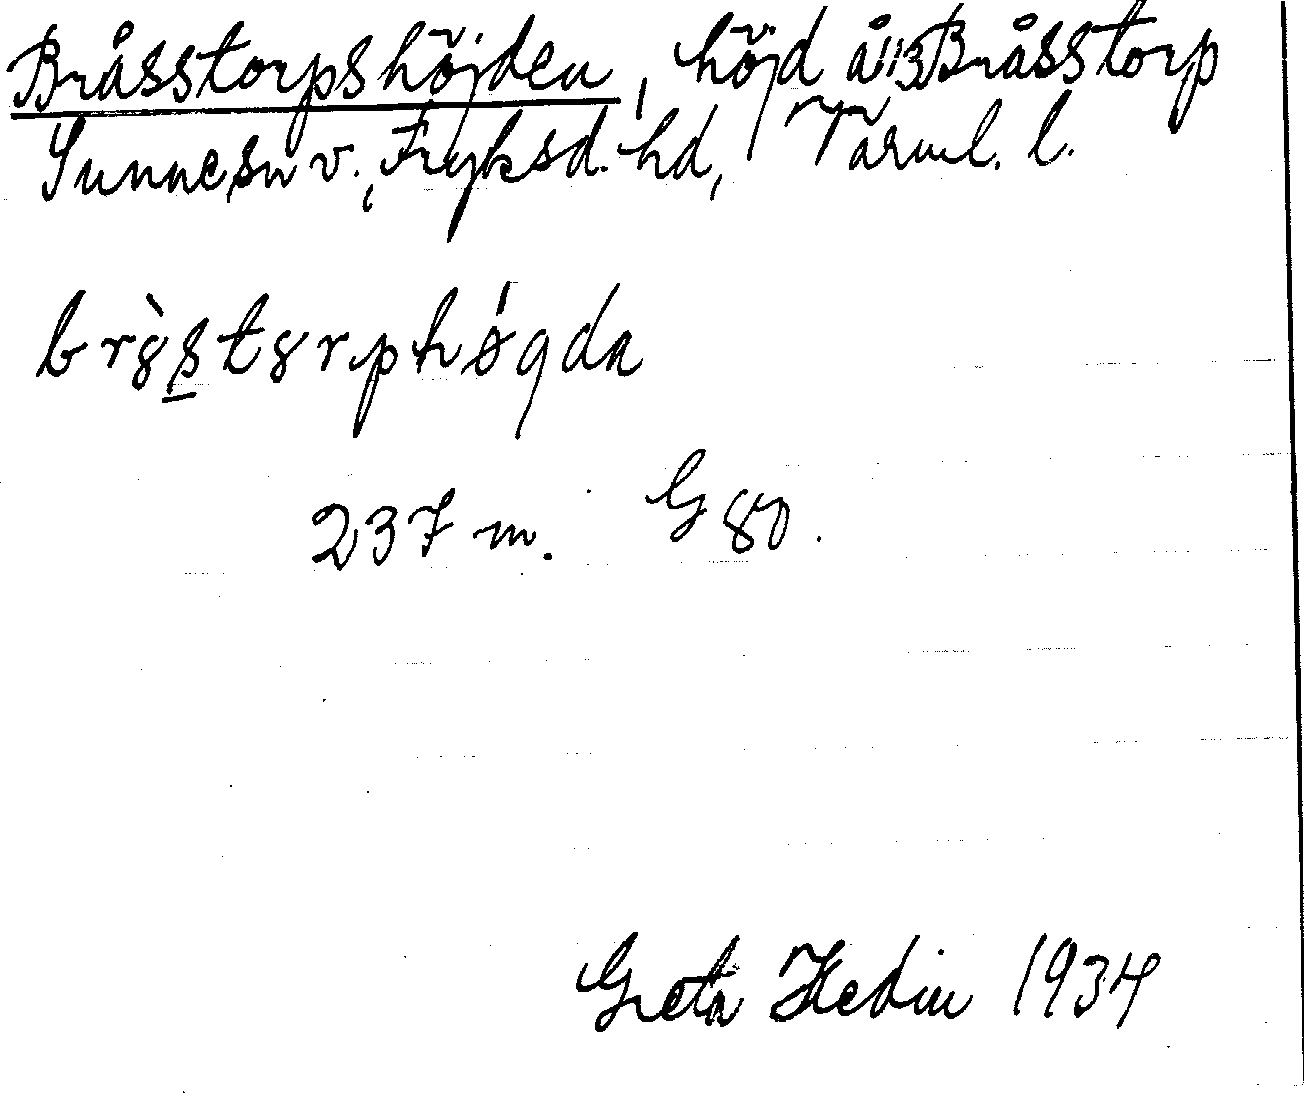 Bråsstorpshöjden, höjd å 1/3 Bråsstorp
Sunne sn v., Fryksd. hd, Värml. l.
237 m. G 80.
Greta Hedin 1934